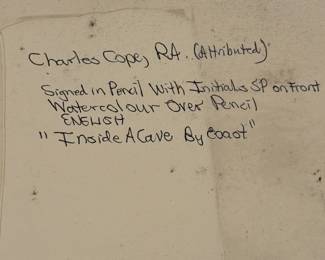 Charles Cope, RA. (Attributed)
Signed in Pencil With Initials SP on Front
Watercolour Over Pencil
ENGLISH
"Inside A Cave By Coast"